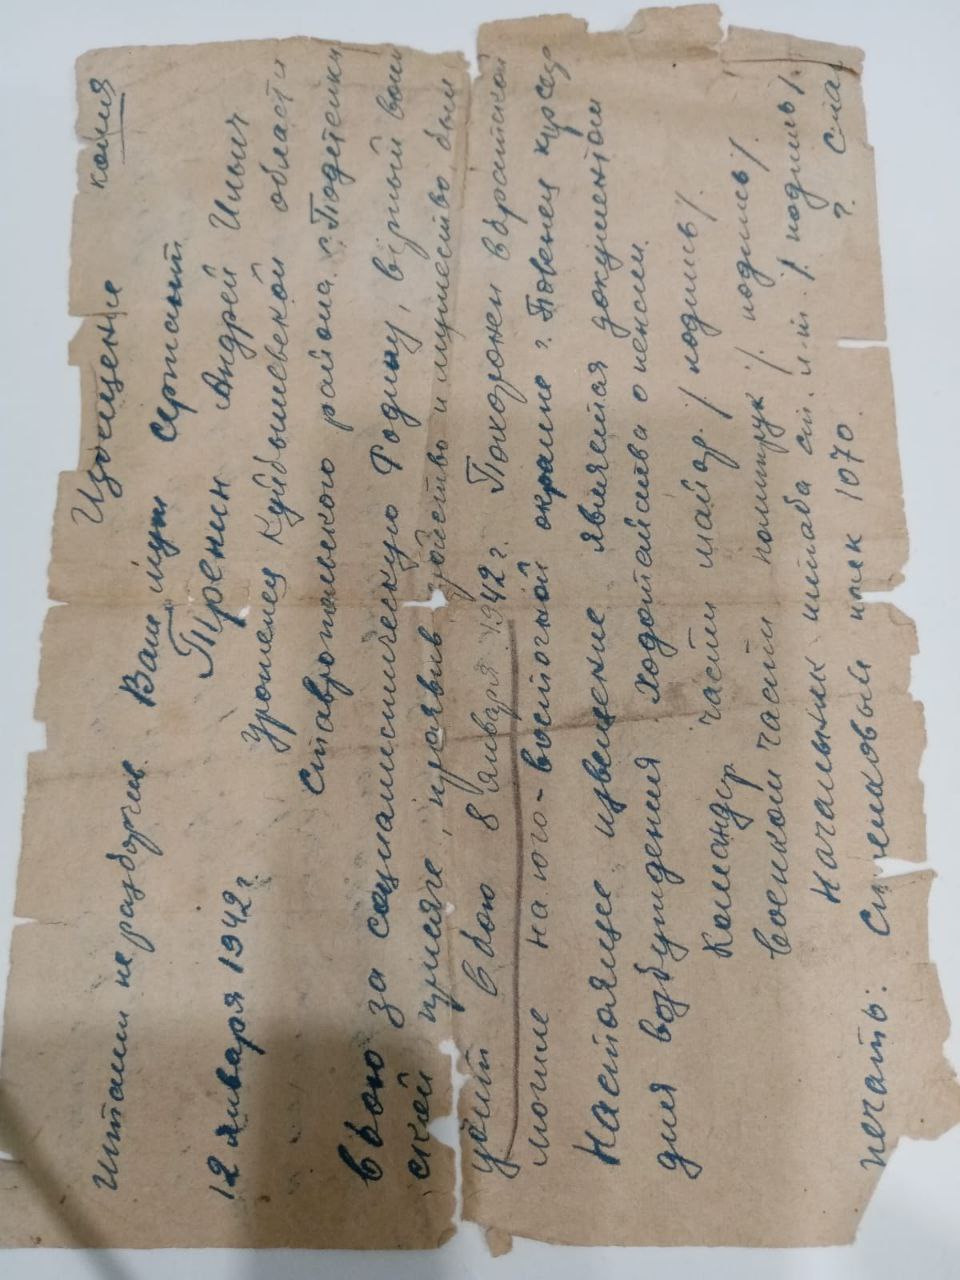 копия
Извещение
Штамп неразборчив Ваш муж сержант
Тренин Андрей Ильич
12 января 1942 г. Уроженец Куйбышевской области
Ставропольского района с. Подстепки
в бою за социалистическую Родину, верный воин
ской присяге, проявив геройство и мужество был
убит в бою 8 января 1942 г. Похоронен в братской
могиле на юго-восточной окраине г. Повенец
Настоящее извещение является документом
для возбуждения ходотайства о пенсии.
Командир части майор / подпись /
военком части политрук / подпись /
Начальник штаба ст. л-т. / подпись /
печать: Стрелковый полк 1070. г.